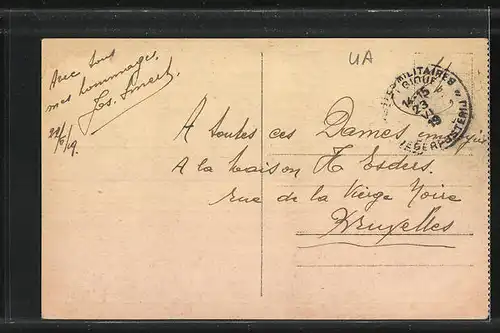 Avec tous
mes hommages.
22/6/19.
UA
POSTES MILITAIRES
BELGIQUE
14-15
23
VI
19
LEGERPOSTERIJ
A toutes ces Dames employées
A la Maison H Esders.
rue de la Vierge Noire
Bruxelles